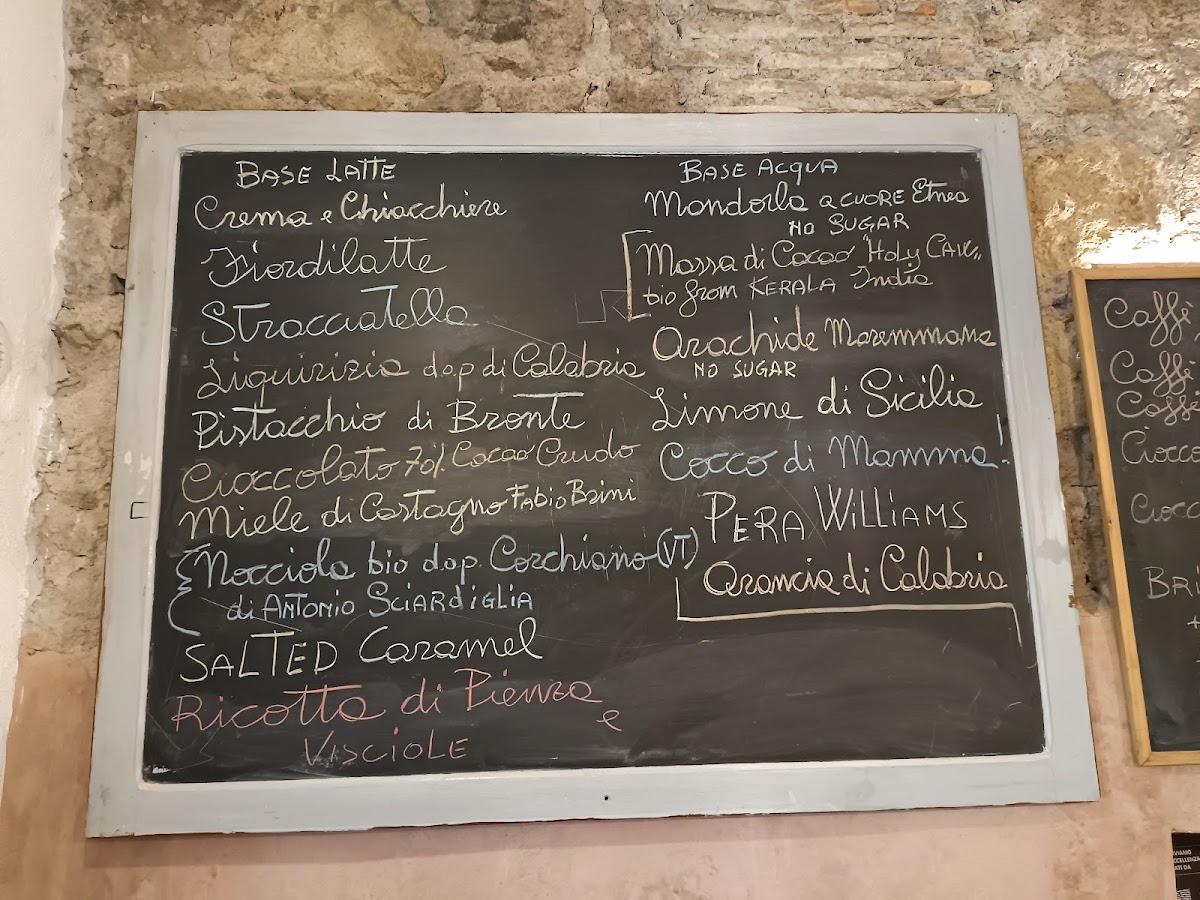 BASE LATTE
Crema e Chiacchiere
Fiordilatte
Stracciatella
Liquirizia d.o.p di Calabria
Pistacchio di Bronte
Cioccolato 70% Cacao Crudo
Miele di Castagno Fabio Brini
Nocciola bio d.o.p. Corchiano (VT)
di ANTONIO SCIARDIGLIA
SALTED Caramel
Ricotta di Pienza
e
VISCIOLE
BASE ACQUA
Mandorla a CUORE Etnea
NO SUGAR
Massa di Cacao "HOLY
bio from KERALA India
Arachide Maremmana
NO SUGAR
Limone di Sicilia
Cocco di Mamma!
PERA WILLIAMS
Arancia di Calabria
Caffè
Caffè
Caffè
Ciocco
Ciocc
BRI
+
OVIAMO
CCELLENZA
ATI DA